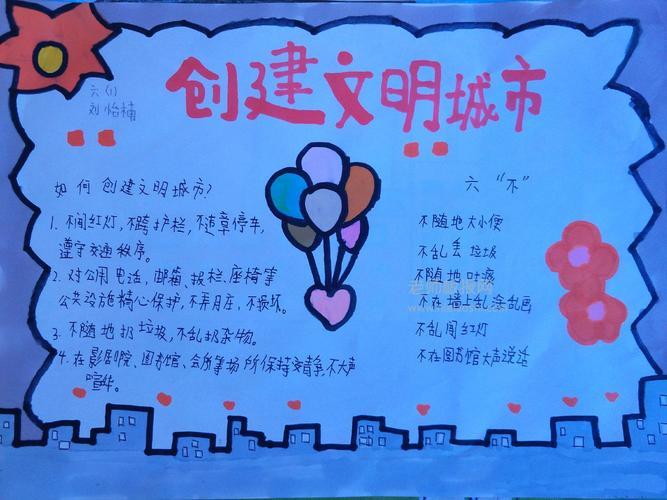 创建文明城市
六(1)
刘怡楠
如何创建文明城市?
1. 不闯红灯,不跨护栏,不违章停车,
遵守交通秩序。
2. 对公用电话,邮箱、报栏、座椅等
公共设施精心保护,不弄脏,不损坏。
3. 不随地扔垃圾,不乱扔杂物。
4. 在影剧院、图书馆、会所等场所保持安静,不大声
喧哗。
六“不”
不随地大小便
不乱丢垃圾
不随地吐痰
不在墙上乱涂乱画
不乱闯红灯
不在图书馆大声说话
老师板报网